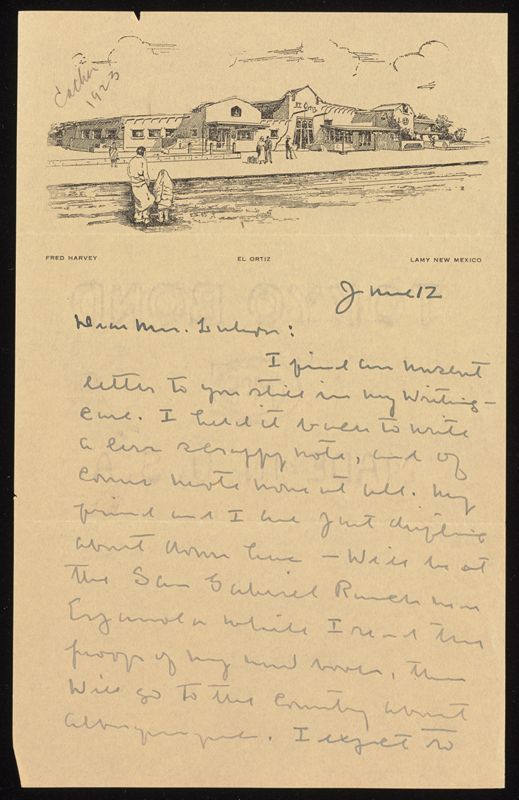 Cather
1925
EL ORTIZ
FRED HARVEY EL ORTIZ LAMY NEW MEXICO
June 12
Dear Mrs.
I find an unsent
letter to you still in my writing-
case. I held it back to write
a less scrappy note, and of
course wrote none at all. My
friend and I are just drifting
about down here – will be at
the San Gabriel Ranch near
Espanola while I read the
proofs of my new book, then
will go to the country about
Albuquerque. I expect to